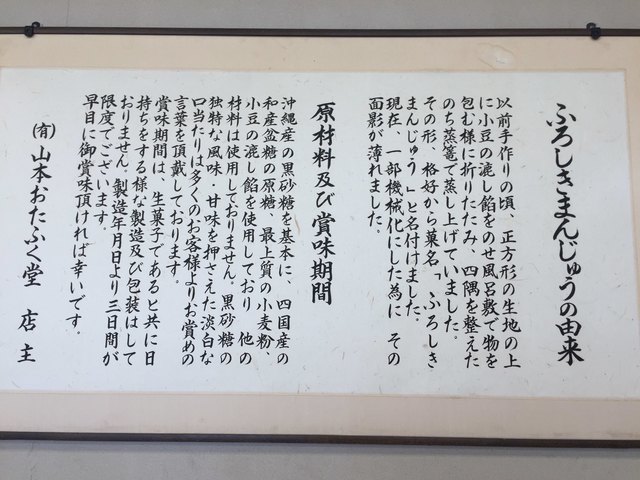 ふろしきまんじゅうの由来
以前手作りの頃、正方形の生地の上
に小豆の漉し餡をのせ風呂敷で物を
包む様に折りたたみ、四隅を整えた
のち蒸篭で蒸し上げていました。
その形、格好から菓名「ふろしき
まんじゅう」と名付けました。
現在、一部機械化にした為に、その
面影が薄れました。
原材料及び賞味期間
沖縄産の黒砂糖を基本に、四国産の
和産盆糖の原糖、最上質の小麦粉、
小豆の漉し餡を使用しており 他の
材料は使用しておりません。黒砂糖の
独特な風味・甘味を押さえた淡白な
口当たりは多くのお客様よりお賞めの
言葉を頂戴しております。
賞味期間は、生菓子であると共に日
持ちをする様な製造及び包装はして
おりません。製造年月日より三日間が
限度でございます。
早目に御賞味頂ければ幸いです。
(有)山本おたふく堂 店主